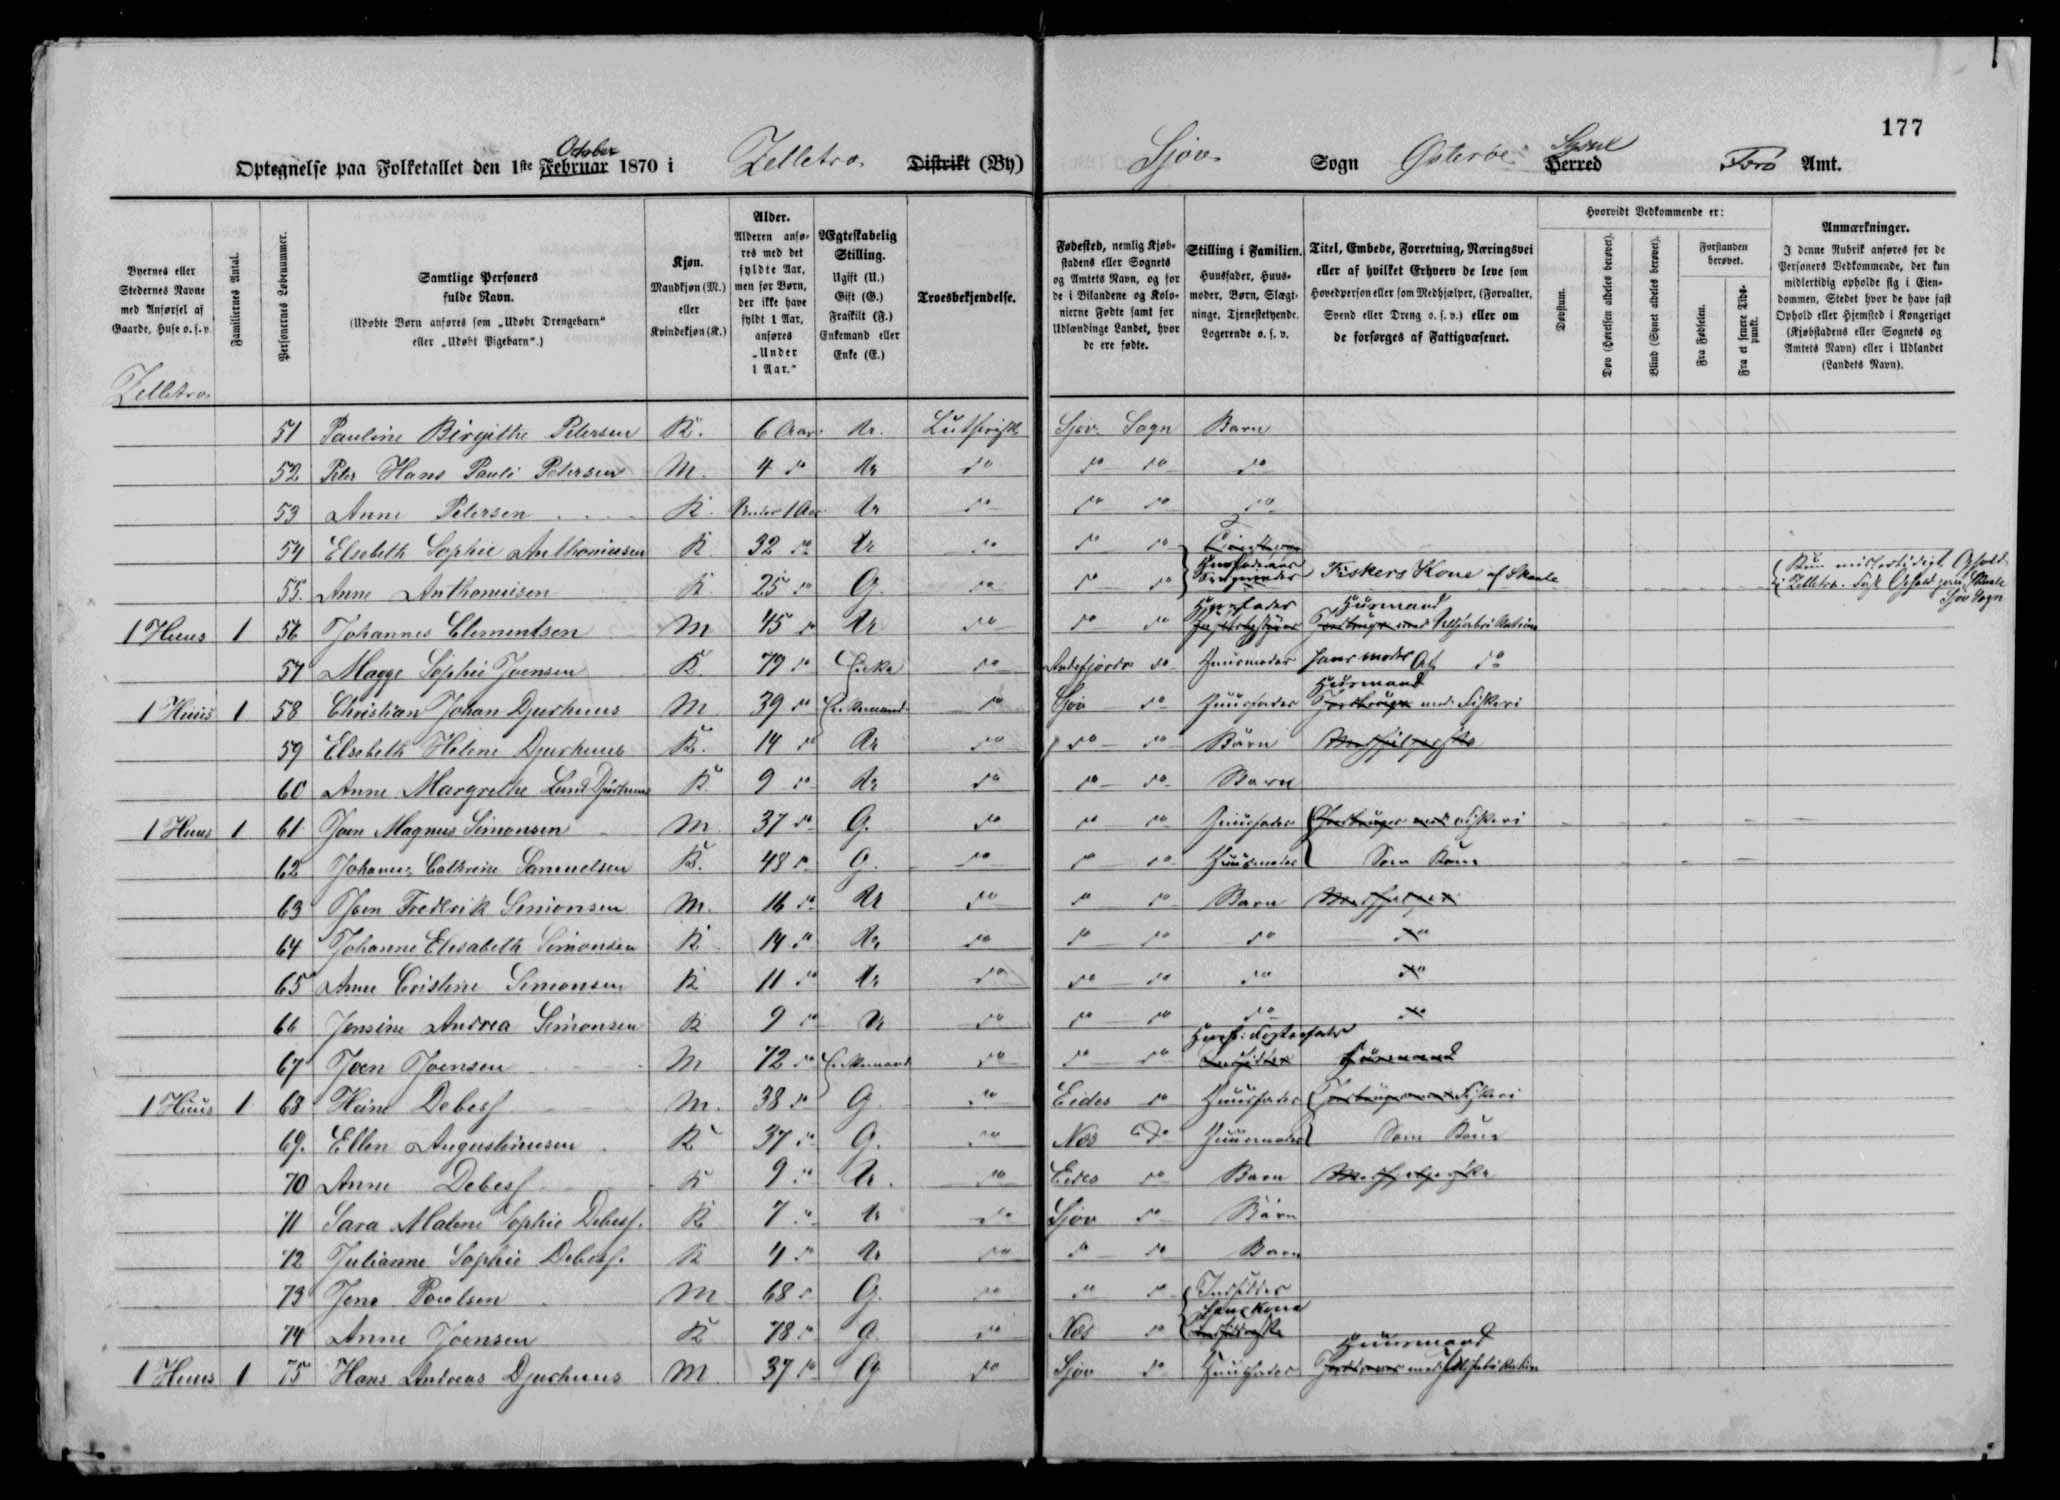 177
October
Optegnelse paa Folketallet den 1ste Februar 1870 i Zelletræ Distrikt (By)
Sjov Sogn Østerøe Syssel Herred Færø Amt.
Byernes eller Stedernes Navne med Anførsel af Gaarde, Huse o. s. v.
Familiernes Antal.
Personernes Løbenummer.
Samtlige Personers fulde Navn.
(Udøbte Børn anføres som „Udøbt Drengebarn“ eller „Udøbt Pigebarn“.)
Kjøn.
Mandkjøn (M.) eller Kvindekjøn (K.)
Alder.
Alderen anføres med det fyldte Aar, men for Børn, der ikke have fyldt 1 Aar, anføres „Under 1 Aar.“
Ægteskabelig Stilling.
Ugift (U.) Gift (G.) Fraskilt (F.) Enkemand eller Enke (E.)
Troesbekjendelse.
Fødested, nemlig Kjøbstadens eller Sognets og Amtets Navn, og for de i Bilandene og Kolonierne Fødte samt for Udlændinge Landet, hvor de ere fødte.
Stilling i Familien.
Huusfader, Huusmoder, Børn, Slægtninge, Tjenestetyende, Logerende o. s. v.
Titel, Embede, Forretning, Næringsvei eller af hvilket Erhverv de leve som Hovedperson eller som Medhjælper, (Forvalter, Svend eller Dreng o. s. v.) eller om de forsørges af Fattigvæsenet.
Hvorvidt Vedkommende er:
Døvstum.
Døv (Hørelsen aldeles berøvet).
Blind (Synet aldeles berøvet).
Forstanden berøvet.
Fra Fødselen.
Fra et senere Tidspunkt.
Anmærkninger.
I denne Rubrik anføres for de Personers Vedkommende, der kun midlertidig opholde sig i Eiendommen, Stedet hvor de have fast Ophold eller Hjemsted i Kongeriget (Kjøbstadens eller Sognets og Amtets Navn) eller i Udlandet (Landets Navn).
Zelletræ
51 Pauline Birgithe Petersen K. 6 Aar U. Luthersk Sjov Sogn Barn
52 Peter Hans Pauli Petersen M. 4 do U do do do do
53 Anne Petersen K. Under 1 Aar U do do do do
54 Elsebeth Sophie Anthoniusen K 32 do U do do do
55. Anne Anthoniusen K. 25 do G. do do do Fiskers Kone af Skaale
Kun midlertidigt Ophold i Zelletræ. Fast Ophold paa Skaale Sjov Sogn
1 Huus 1 56 Johannes Clementsen M 45 do U do do do Huusfader Huusmand
57 Magge Sophie Joensen K. 79 do Enke do do Huusmoder hans moder do
1 Huus 1 58 Christian Johan Djurhuus M 39 do Enkemand do Sjov do Huusfader Huusmand Jordbruger med Fiskeri
59 Elsebeth Helene Djurhuus K. 14 do U do do do Barn
60 Anne Margrethe Lund Djurhuus K. 9 do U do do do Barn
1 Huus 1 61 Joen Magnus Simonsen M. 37 do G. do do do Huusfader Jordbruger med Fiskeri
62 Johanne Cathrine Samuelsen K. 48 do G. do do do Huusmoder Som Kone
63 Joen Fredrik Simonsen M. 16 do U do do do Barn Medhjelper
64 Johanne Elisabeth Simonsen K 14 do U do do do do do
65 Anne Cristine Simonsen K 11 do U do do do do do
66 Jensine Andrea Simonsen K 9 do U do do do do do
67 Joen Joensen M 72 do Enkemand do do do Huusmand
1 Huus 1 68 Heine Debess M. 38 do G do Eides do Huusfader Jordbruger med Fiskeri
69. Ellen Augustinusen K 37 do G. do Næs do Huusmoder Som Kone
70 Anne Debess K 9 do U. do Eides do Barn
71 Sara Malene Sophie Debess. K 7 do U do Sjov do Barn
72 Julianne Sophie Debess. K 4 do U do do do Barn
73 Jens Poulsen M 68 do G. do do do Indsidder
74 Anne Joensen K 78 do G do Næs do hans Kone
1 Huus 1 75 Hans Andreas Djurhuus M 37 do G do Sjov do Huusfader Huusmand